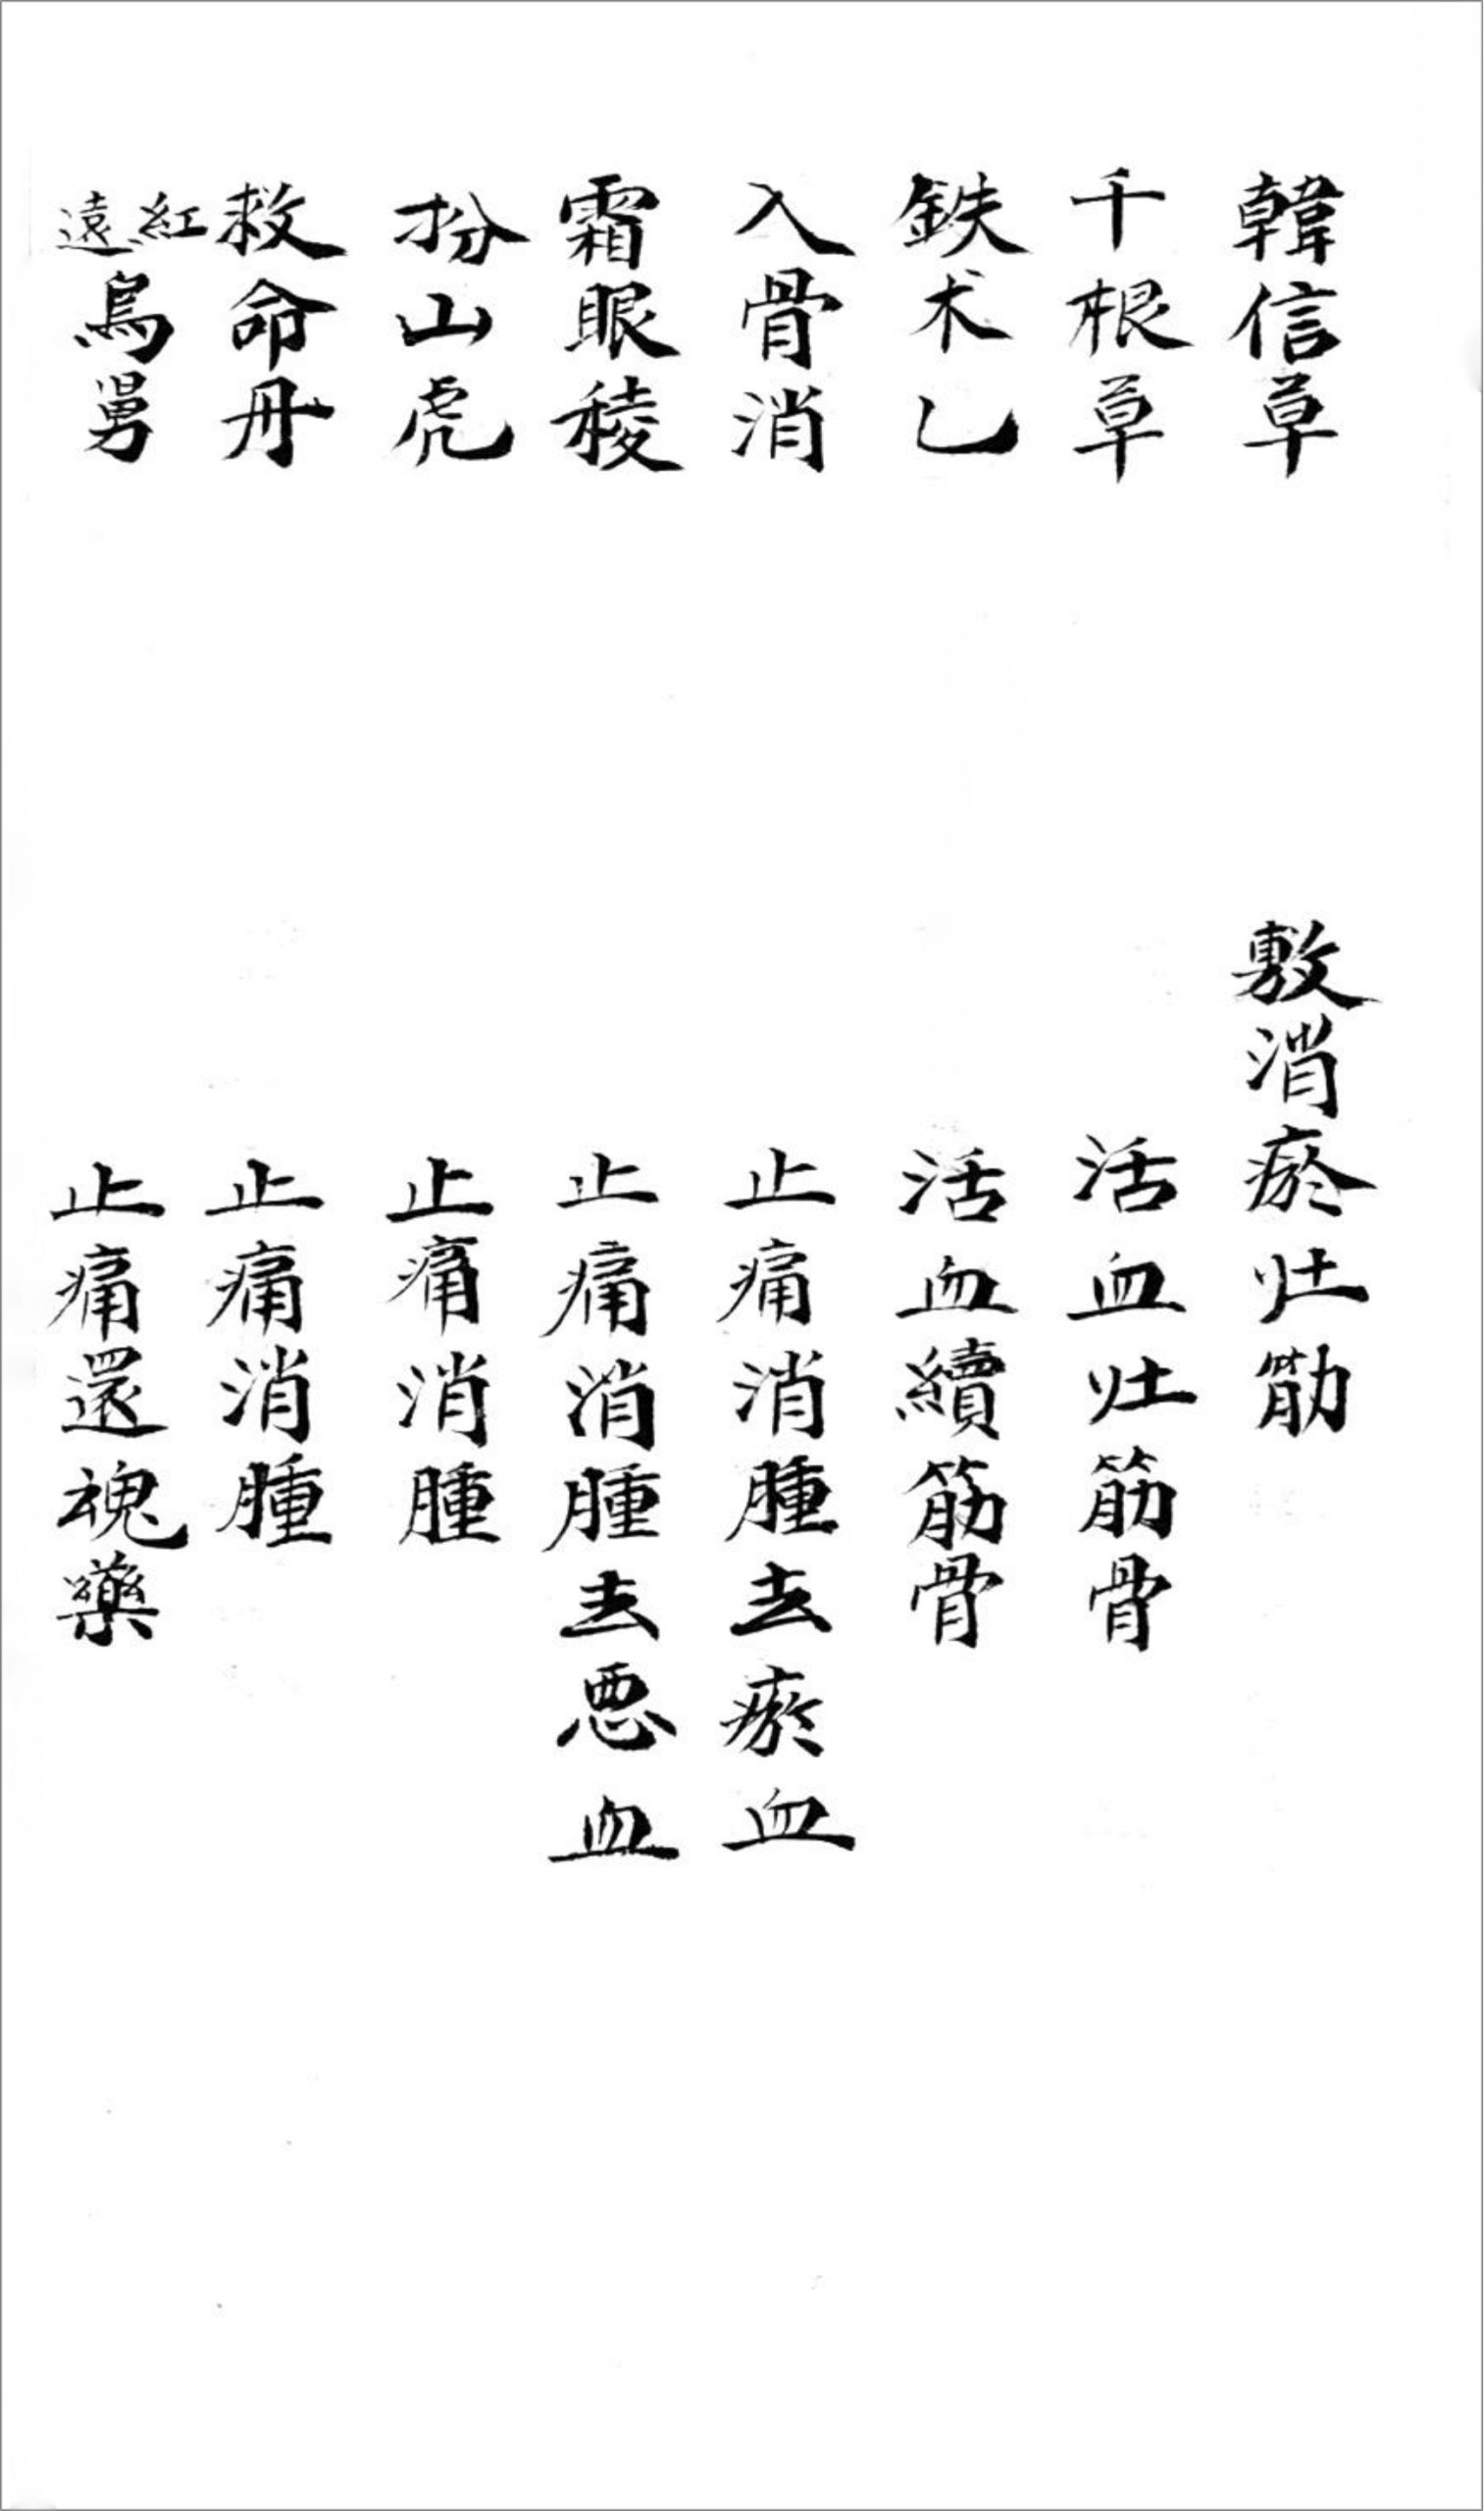 韓信草 敷消瘀壮筋
千根草 活血壮筋骨
鉄木乚 活血續筋骨
入骨消 止痛消腫去瘀血
霜眼稜 止痛消腫去悪血
扮山虎 止痛消腫
救命丹 止痛消腫
紅遠烏舅 止痛還魂藥